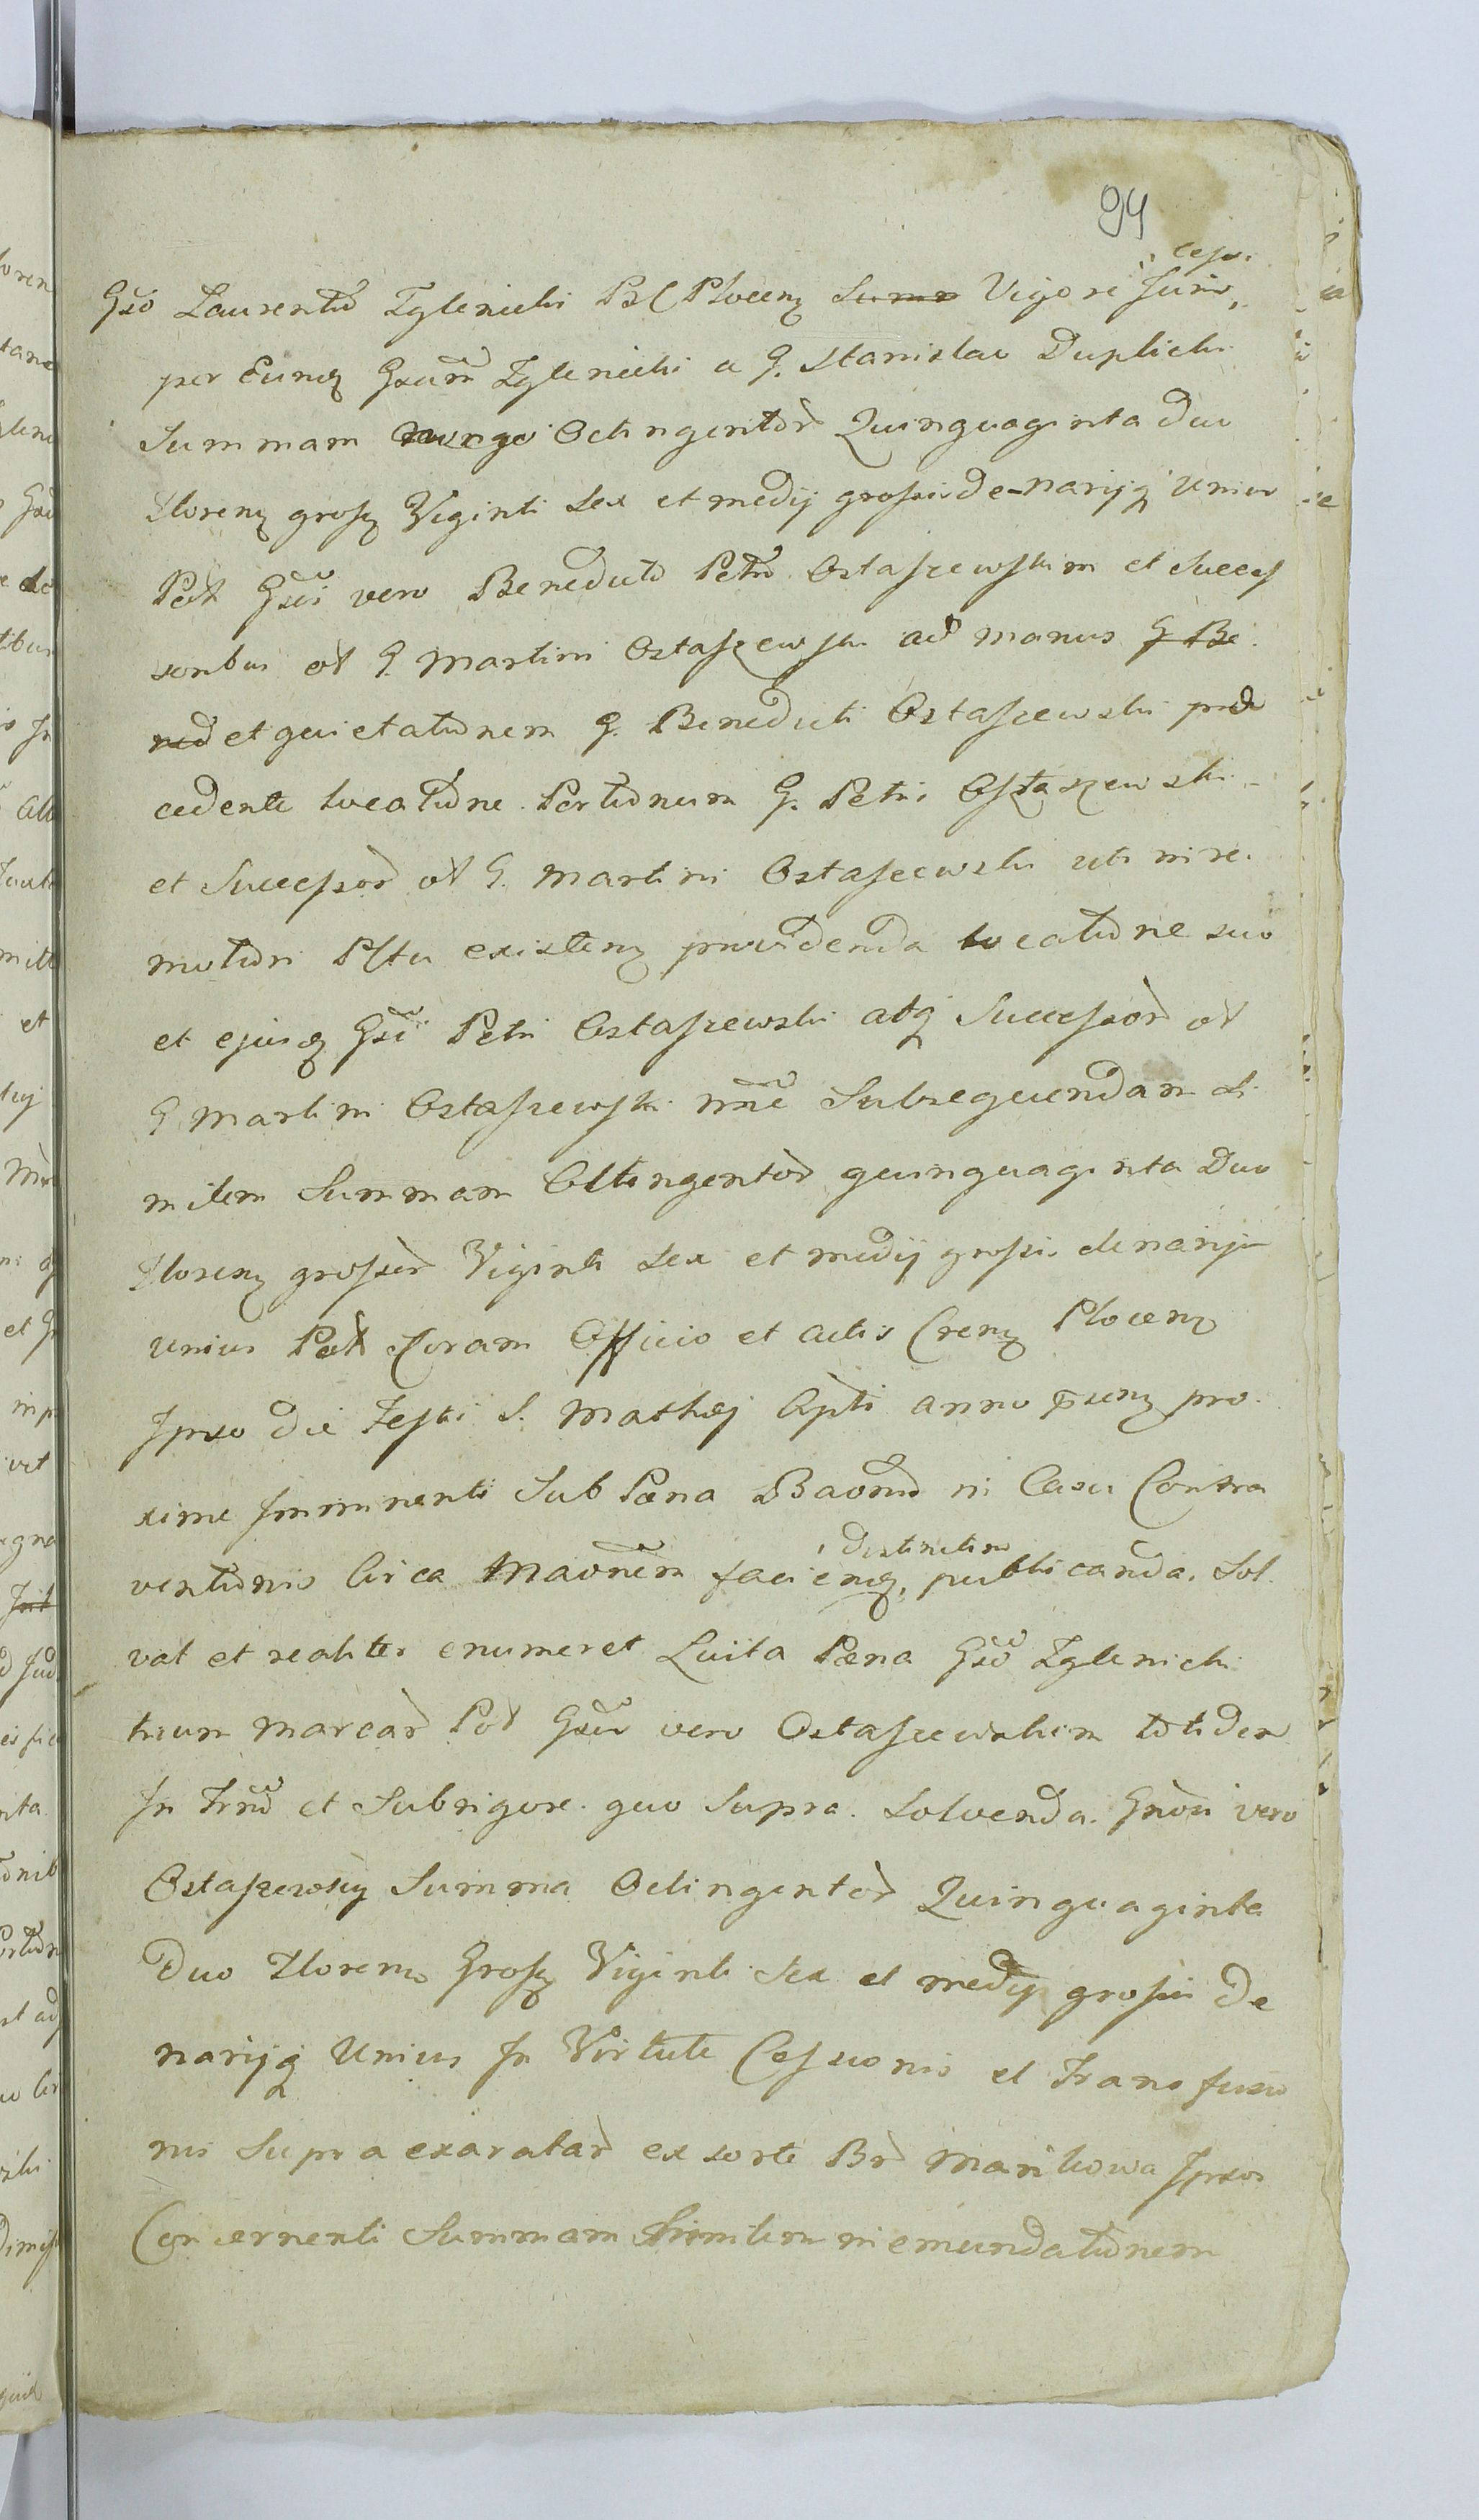 94
cess.
Gso Laurentio Zglenicki BC Plocen Summ Vigore Juris
per Eunq Gsum Zglenicki a G. Stanislao Duplicki
Summam Octingentor Quinquaginta duo
Floren gross Viginti Sex et medij grossi de-narijq unius
Pol Gsi vero Benedicto Petro Ostaszewskim et Success
soribus ol G. Martini Ostaszewski ad manus G Be
ned et quietationem G. Benedicti Ostaszewski prae
cedente locatione Portionum G. Petri Ostaszewski
et Successor ol G. Martini Ostaszewski uti in re
motiori Pstu existen providenda locatione suo
et ejusq Gsi Petri Ostaszewski atq Successor ol
G Martini Ostaszewski nne Subsequendam Si
milem Summam Octingentor quinquaginta Duo
Floren grossor Viginti Sex et medij grossi denarij
unius Pol Coram Officio et actis Cren Plocen
Ipso die Festi S. Mathaej Apli anno psen pro
xime Imminenti Sub Paena Baonis in Casu Contra
distinctim
ventionis Circa Maonem facienq, publicanda. Sol
vat et realiter enumeret Luita Paena Gso Zglenicki
trium marcar Pol Gsu vero Ostaszewskim totidem
In Trno et Sub rigore quo Supra Solvenda. Gnosi vero
Ostaszewscy Summa Octingentor Quinquaginta
Duo Floren Gross Viginti Sex et medij grossi De
narijq Unius In Virtute Cessionis et Transfusio
nis Supra exaratar ex sorte Br Mankowa Ipsos
Concernenti Summam Similem in emundationem